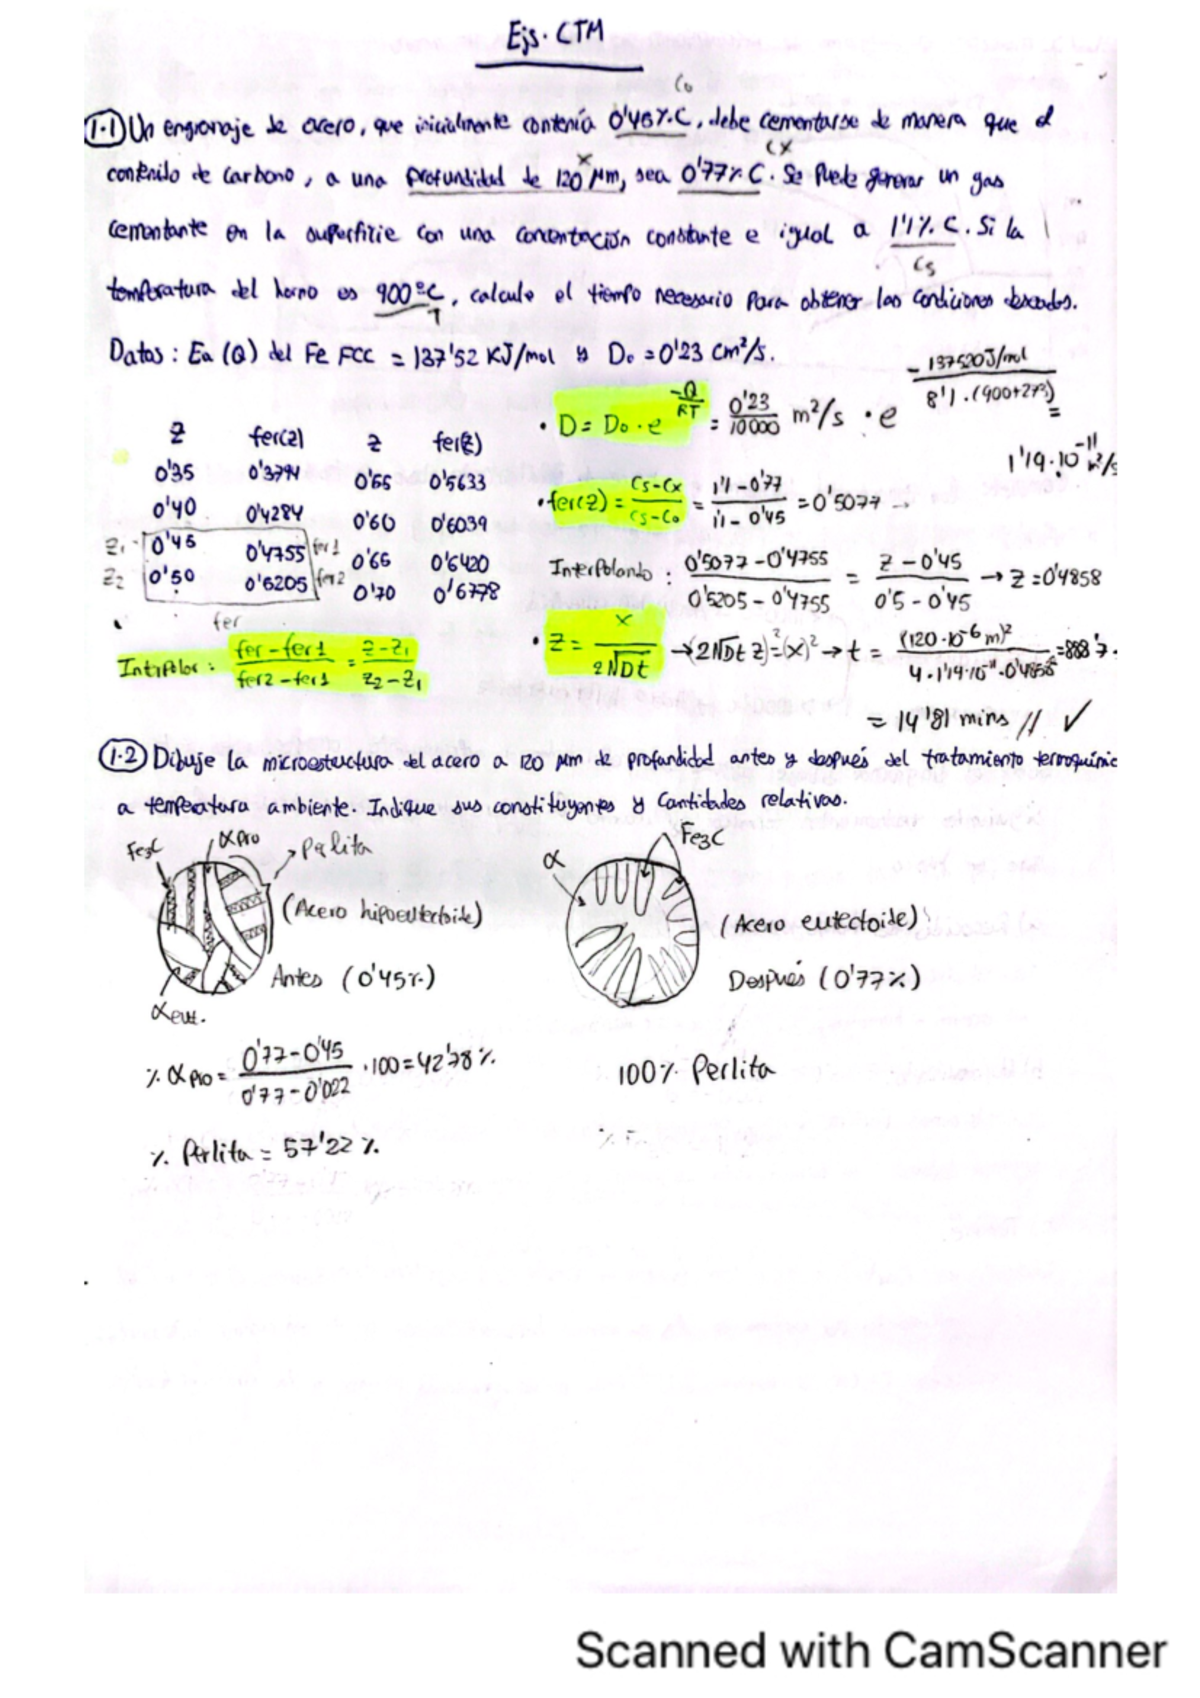 Ejs. CTM
Co
1.1 Un engranaje de acero, que inicialmente contenía 0'45% C, debe cementarse de manera que el
x
Cx
contenido de carbono, a una profundidad de 120 μm, sea 0'77% C. Se puede generar un gas
cementante en la superficie con una concentración constante e igual a 1'1% C. Si la
Cs
temperatura del horno es 900°C, calcule el tiempo necesario para obtener las condiciones deseadas.
T
Datos: Ea (Q) del Fe FCC = 137'52 KJ/mol y D₀ = 0'23 cm²/s.
Z fer(z) Z fer(z)
0'35 0'3794 0'55 0'5633
0'40 0'4284 0'60 0'6039
Z₁ 0'45 0'4755 fer1 0'65 0'6420
Z₂ 0'50 0'5205 fer2 0'70 0'6778
fer
Interpolar: (fer - fer1)/(fer2 - fer1) = (z - z₁)/(z₂ - z₁)
• D = D₀ · e^(-Q/RT) = 0'23/10000 m²/s · e^(-137520 J/mol / 8'31 · (900+273)) =
1'19·10⁻¹¹ m²/s
• fer(z) = (Cs - Cx)/(Cs - C₀) = (1'1 - 0'77)/(1'1 - 0'45) = 0'5077 →
Interpolando: (0'5077 - 0'4755)/(0'5205 - 0'4755) = (Z - 0'45)/(0'5 - 0'45) → Z = 0'4858
• Z = x/(2√Dt) → (2√Dt z)² = (x)² → t = (120·10⁻⁶ m)²/(4·1'19·10⁻¹¹·0'4858²) = 888'7
= 14'81 mins // ✓
1.2 Dibuje la microestructura del acero a 120 μm de profundidad antes y después del tratamiento termoquímic
a temperatura ambiente. Indique sus constituyentes y cantidades relativas.
Fe₃C
α pro
Perlita
(Acero hipoeutectoide)
Antes (0'45%)
α eut.
% α pro = (0'77 - 0'45)/(0'77 - 0'022) · 100 = 42'78 %
% Perlita = 57'22 %
α
Fe₃C
(Acero eutectoide)
Después (0'77%)
100% Perlita
Scanned with CamScanner